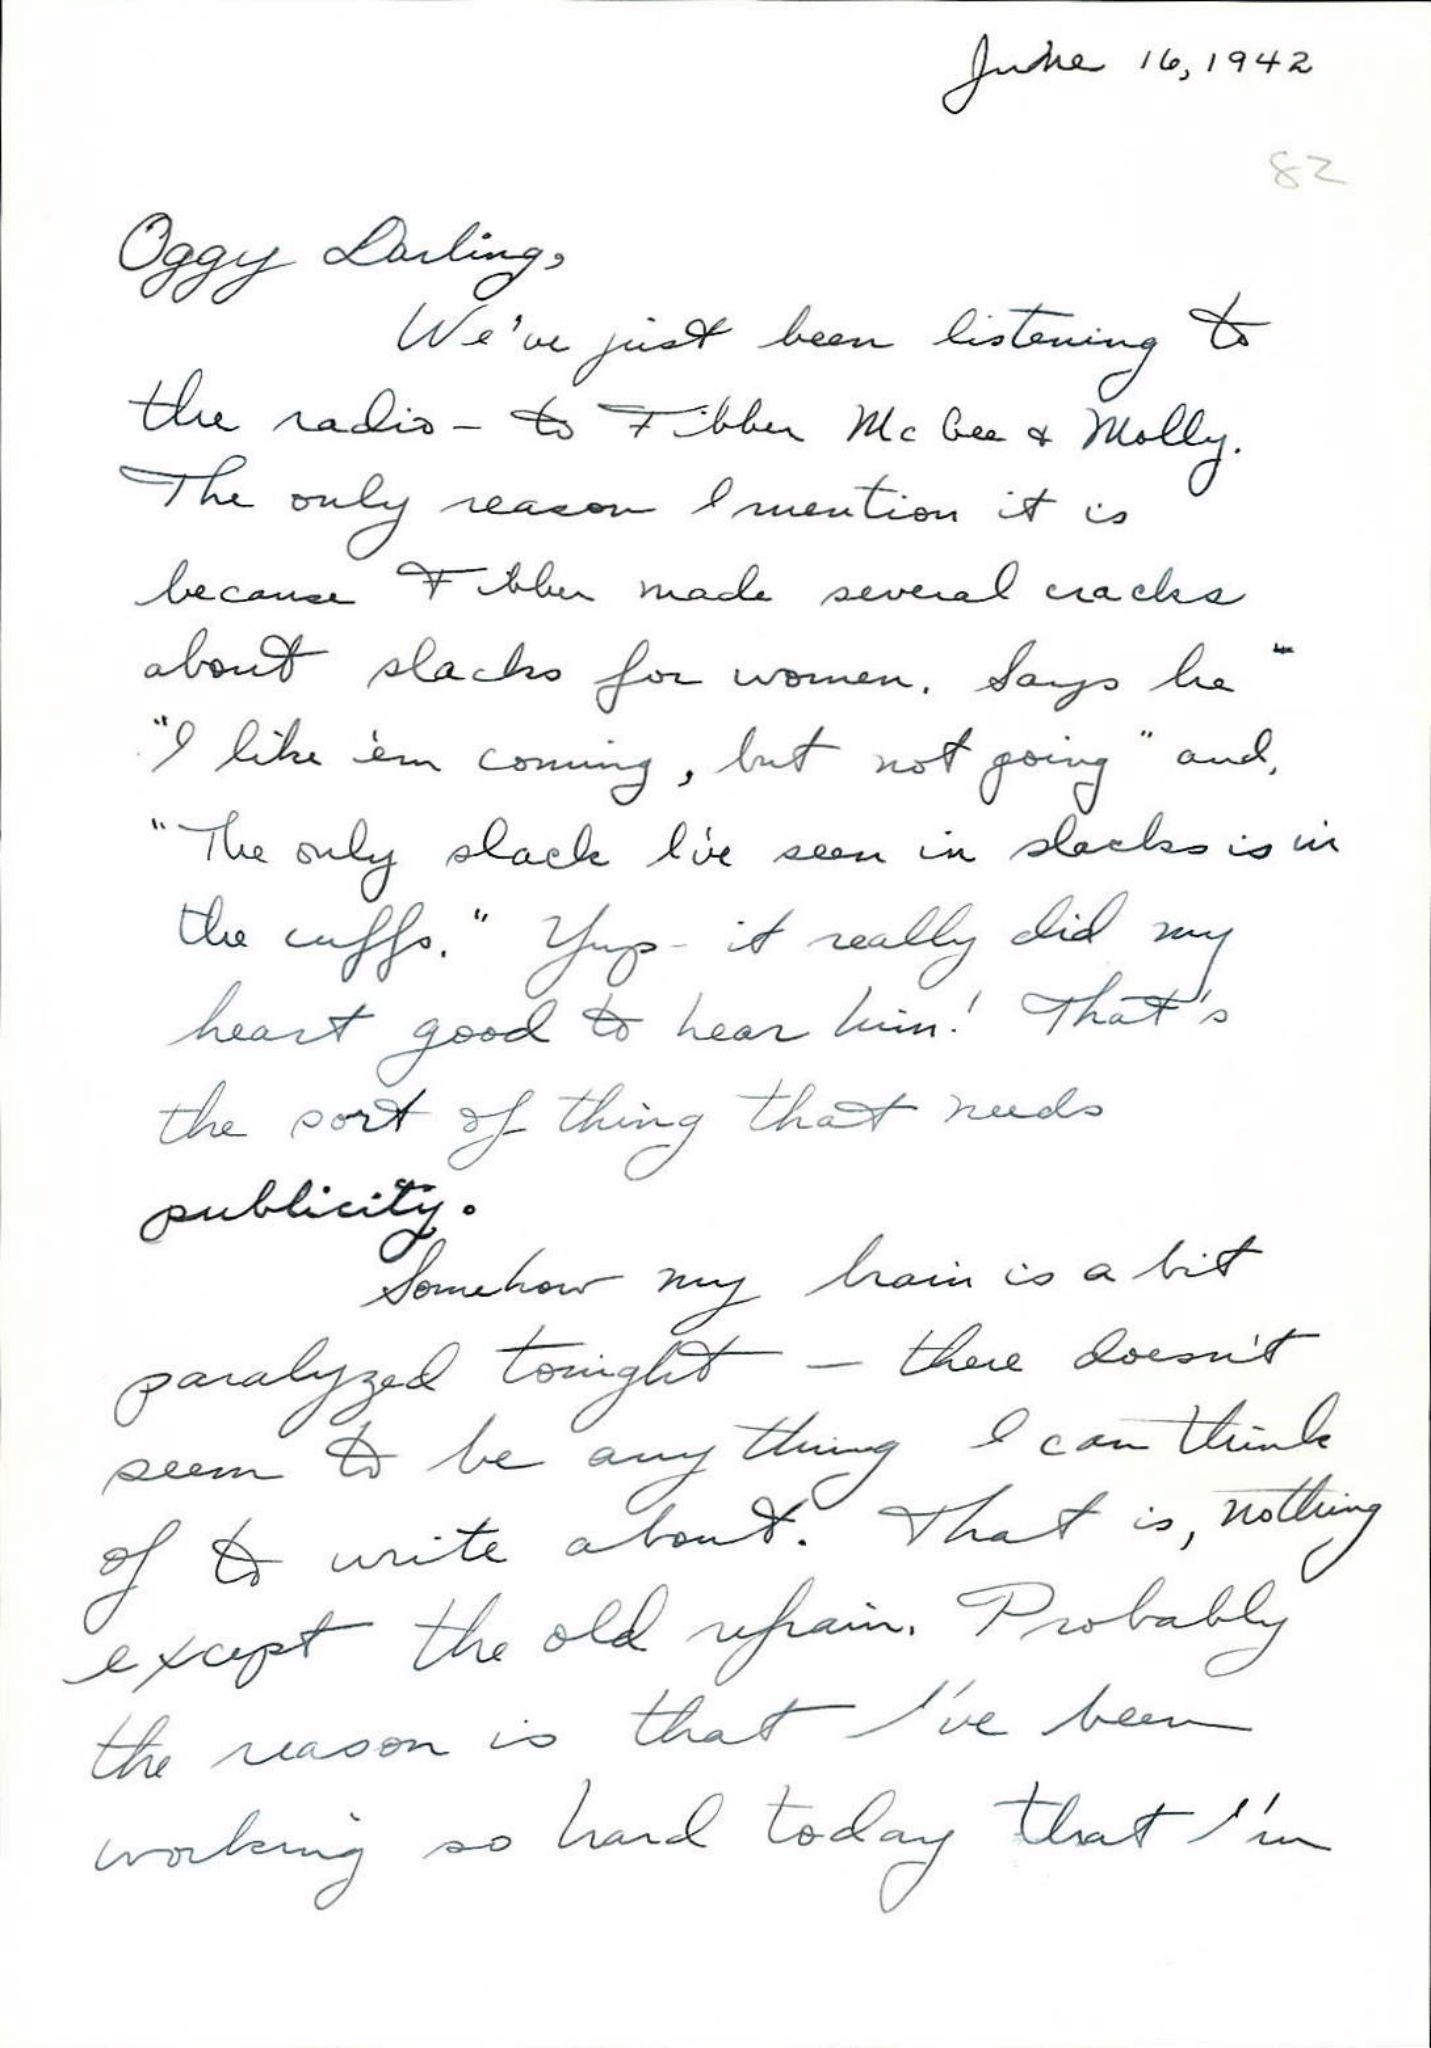 June 16, 1942
82
Oggy Darling,
We've just been listening to
the radio - to Fibber McGee & Molly.
The only reason I mention it is
because Fibber made several cracks
about slacks for women. Says he -
"I like 'em coming, but not going" and,
"The only slack I've seen in slacks is in
the cuffs." Yup - it really did my
heart good to hear him! That's
the sort of thing that needs
publicity.
Somehow my brain is a bit
paralyzed tonight - there doesn't
seem to be any thing I can think
of to write about. That is, nothing
except the old refrain. Probably
the reason is that I've been
working so hard today that I'm